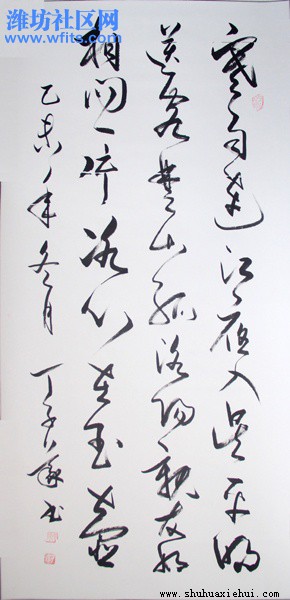 潍坊社区网
www.wfits.com
寒雨连江夜入吴平明
送客楚山孤洛阳亲友如
相问一片冰心在玉壶
乙未年冬月 丁子书
www.shuhuaxiehui.com